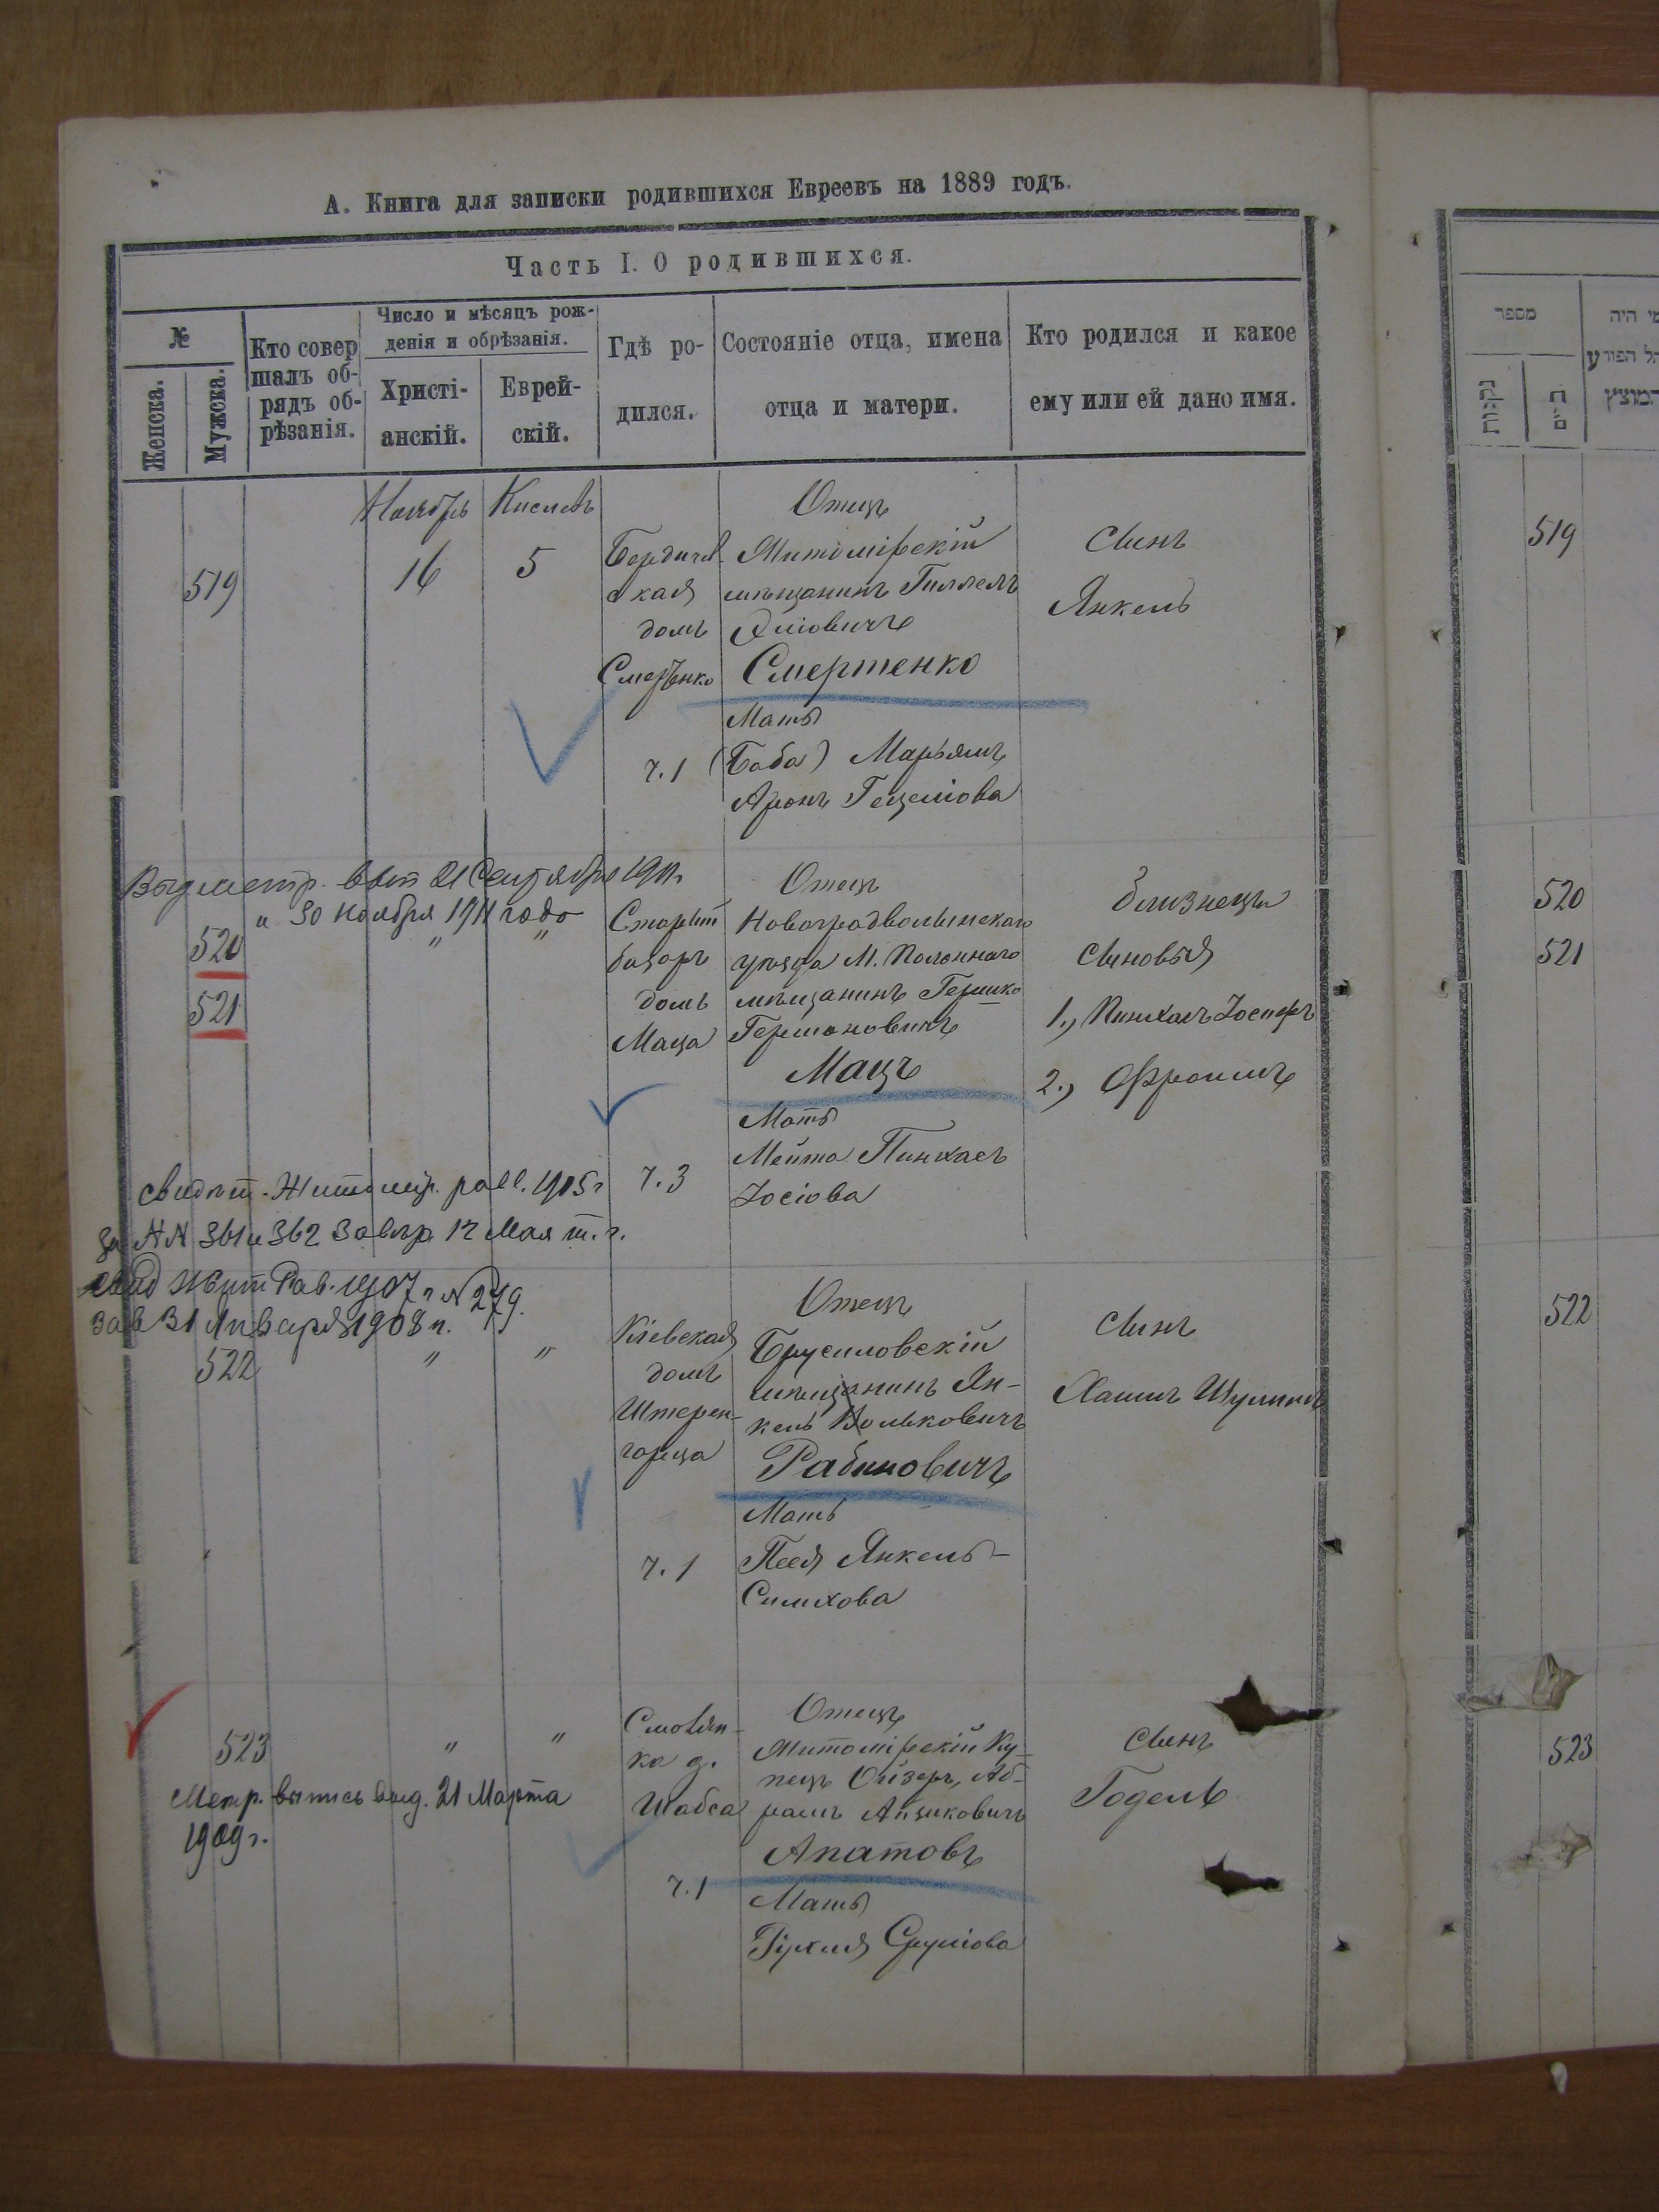 А. Книга для записки родившихся Евреевъ на 1889 годъ.
Часть I. О родившихся.
№
Женска.
Мужска.
Кто совер
шалъ об-
рядъ об-
рѣзанія.
Число и мѣсяцъ рож-
денія и обрѣзанія.
Христі-
анскій.
Еврей-
скій.
Гдѣ ро-
дился.
Состояніе отца, имена
отца и матери.
Кто родился и какое
ему или ей дано имя.
519
Ноябрь
16
Кислевъ
5
Бердичев-
ская
домъ
Смертенко
ч. 1
Отецъ
Житомірскій
мѣщанинъ Гиллель
Смертенко
Мать
(Баба) Марьямъ
Аронъ Гецелiова
Сынъ
Янкель
Выд метр. вып 21 Сентября 1911
и 30 ноября 1911 года
520
521
" "
Старый
базаръ
домъ
Маца
ч. 3
Отецъ
Новоградволынскаго
уѣзда М. Полоннаго
мѣщанинъ Гершко
Гершоновичъ
Мацъ
Мать
Мейта Пинхасъ
Іосіова
близнецы
Сыновья
1., Пинхасъ Іосифъ
2., Фроимъ
свидѣт. Житомир. рав. 1905 г
за №№ 361 и 362 завѣр. 12 Мая т. г.
свид Жит Рав. 1907 г № 279.
зав 31 Января 1908 г.
522
" "
Кіевская
домъ
Штерен-
гарца
ч. 1
Отецъ
Брусиловскій
мѣщанинъ Ян-
кель Вольковичъ
Рабиновичъ
Мать
Песя Янкель-
Симхова
Сынъ
Хаимъ Шулимъ
523
" "
Смолян-
ка д.
Шабса
ч. 1
Метр. выпись выд. 21 Марта
1909 г.
Отецъ
Житомірскій Ку-
пецъ Ойзеръ, Аб-
рамъ Айзиковичъ
Апатовъ
Мать
Рухля Срулiова
Сынъ
Годель
מספר
נקבות
519
520
521
522
523
מי היה